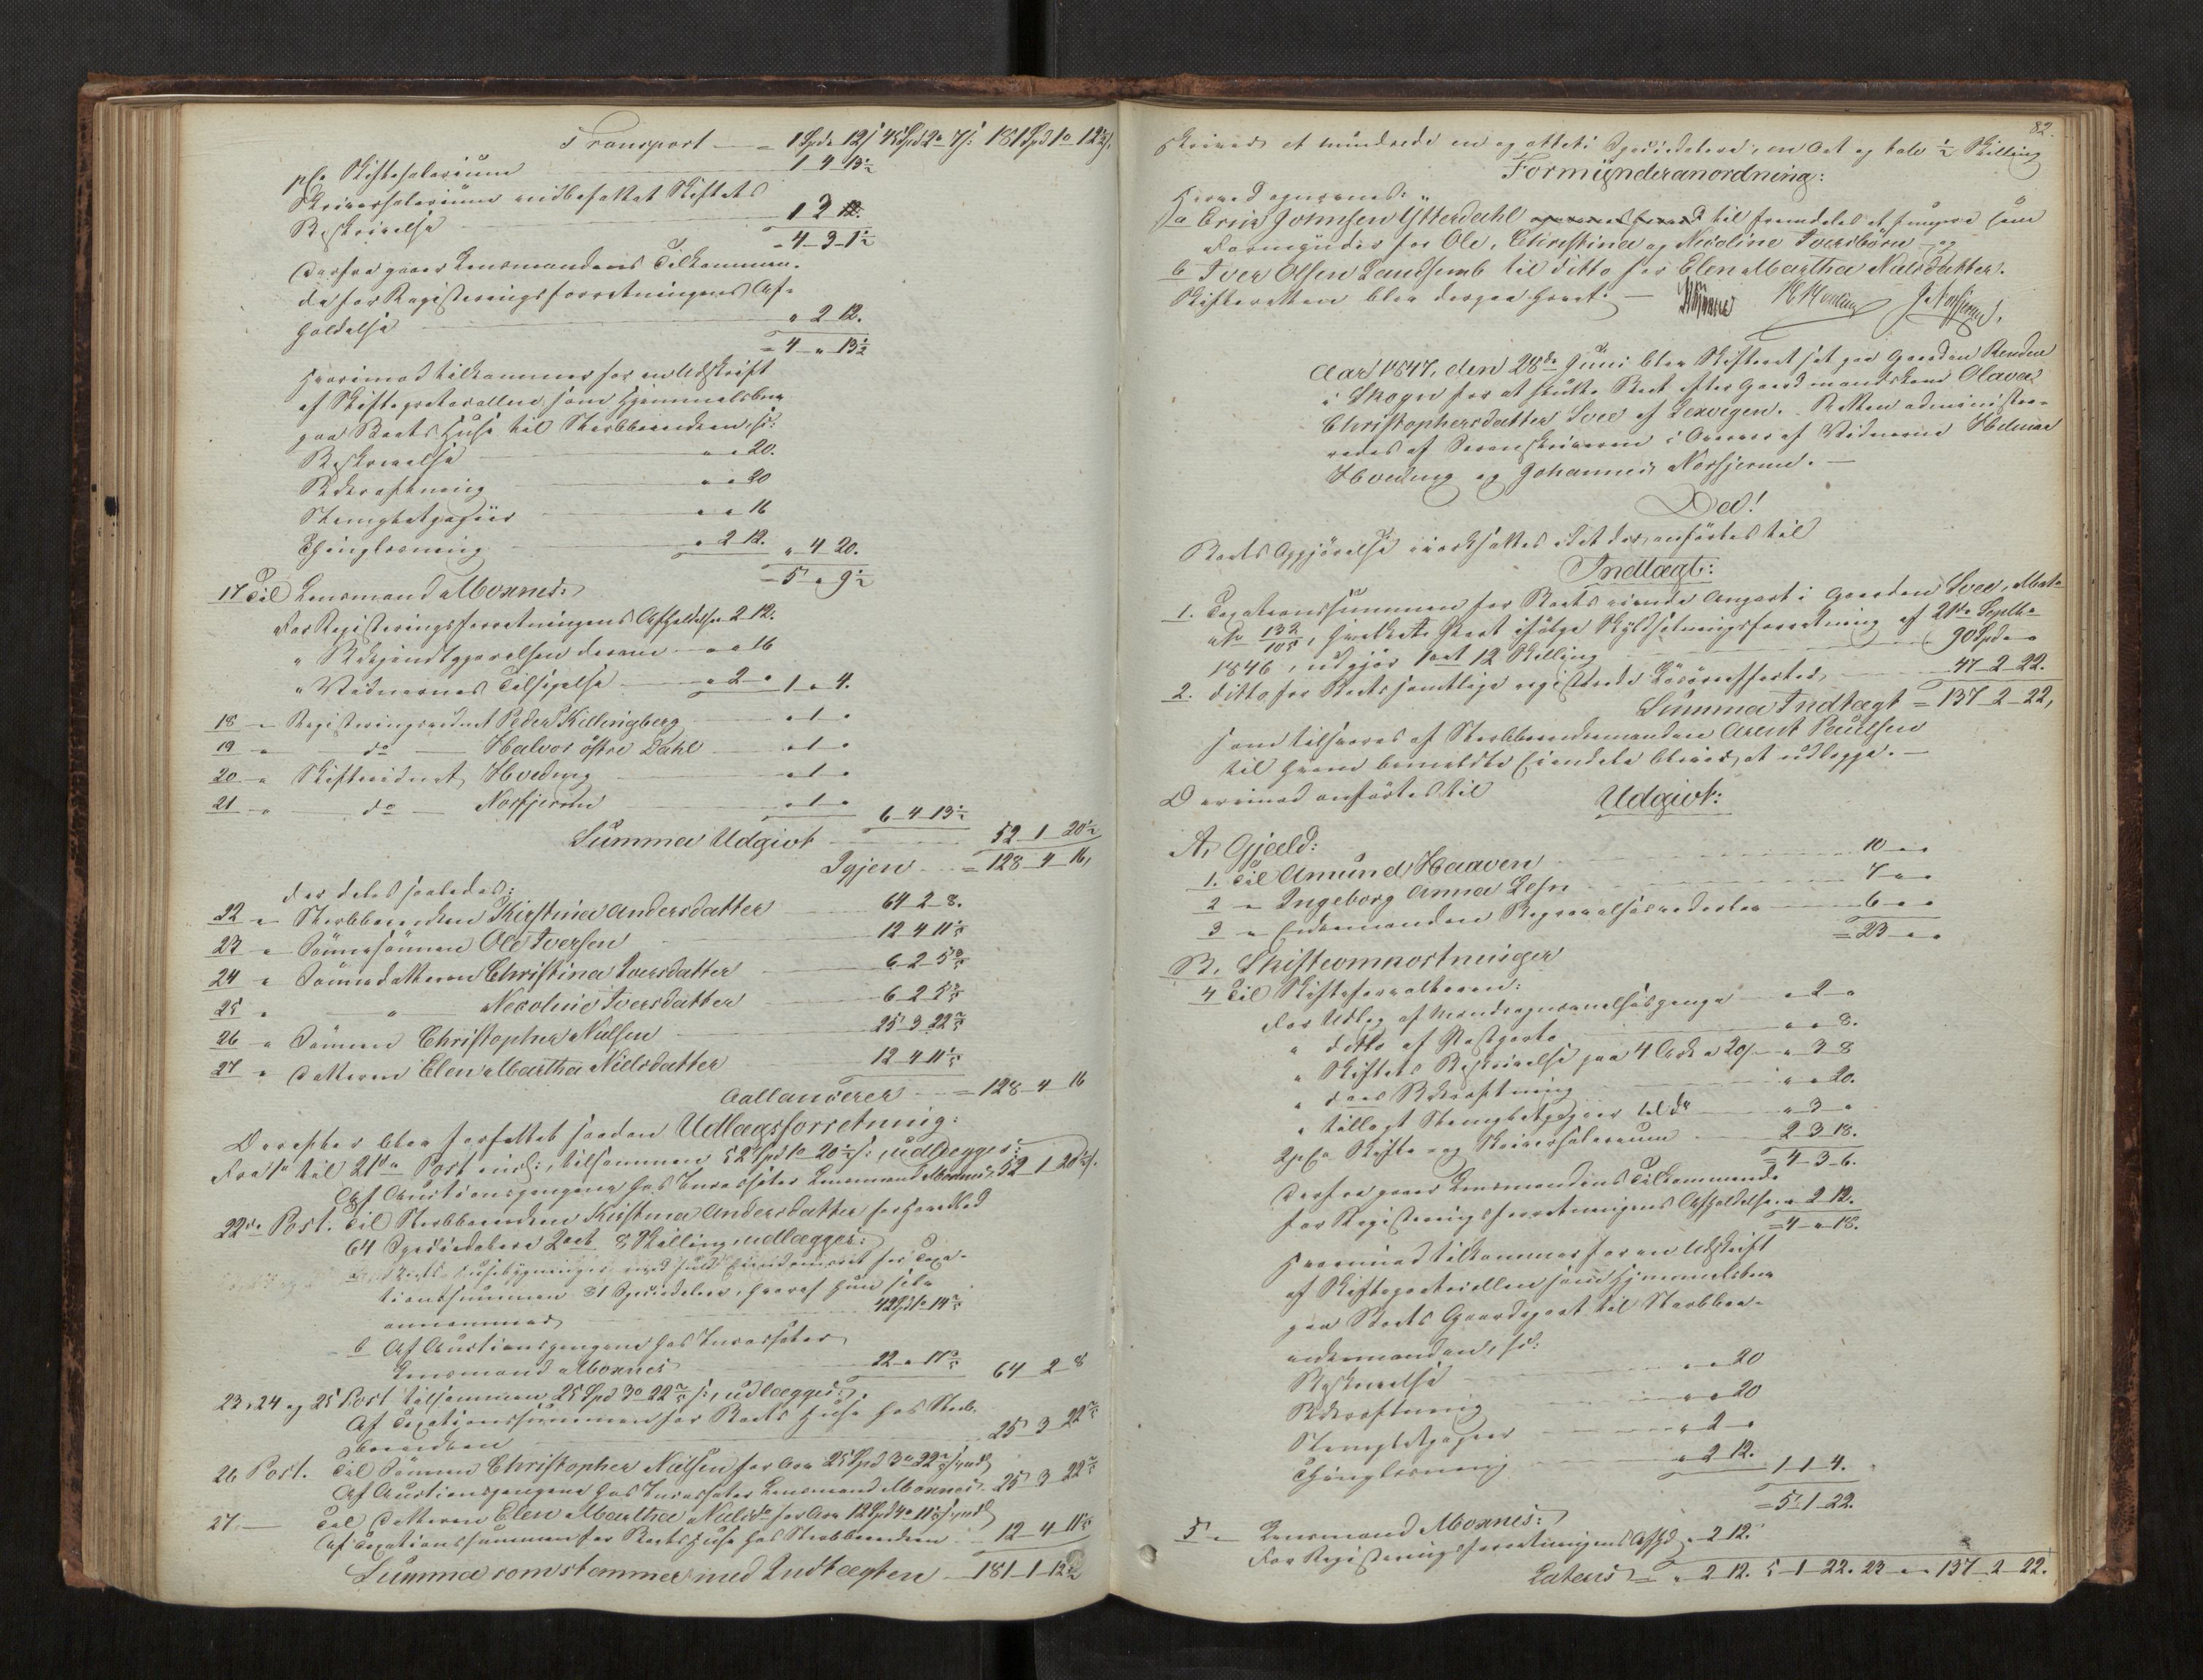 Transport — = 1 Spd " 12 s 45 Spd 2 " 7 s: 181 Spd 1 " 12½ s.
pCt Skiftesalarium 1 4 13½
Skriversalarium indbefattet Skiftets
Beskrivelse 1 3 12.
= 4 - 3 - 1½
Derfra gaaer Lensmandens Tilkommen-
de for Registeringsforretningens Af-
holdelse " 2 12.
= 4 - " 13½
Hvorimod tilkommer for en Udskrift
af Skifteprotocollen, som Hjemmelsbrev
paa Boets Huse til Sterbboenken, s:
Beskrivelse " " 20.
Bekræftning " " 20
Stemplet papiir " " 16
Thinglæsning " 2 12. " 4 20.
= 5 " 9½
17 Til Lensmand Moxnes:
For Registeringsforretningens Afholdelse 2 12.
" Bekjendtgjørelsen derom " " 16
" Vidnernes Tilsigelse " 2 " 1 " 4.
18 " Registeringsvidnet Peder Killingberg " 1 "
19 " — do — Halvor østre Dahl " 1 "
20 " Skiftevidnet Hveding " 1 "
21 " — do — Norfjerm " 1 " 6 - 4 - 13½
Summa Udgivt 52 - 1 - 20½
Igjen = 128 - 4 - 16,
der deles saaledes:
22 " Sterbboenken Kirstina Andersdatter 64 - 2 - 8.
23 " Sønnesønnen Ole Iversen 12 4 11⅕
24 " Sønnedatteren Christina Iversdatter 6 - 2 - 5⅗
25 " " Nicoline Iversdatter 6 - 2 5⅗
26 " Sønnen Christopher Nielsen 25 - 3 22⅖
27 " Datteren Elen Martha Nielsdatter 12 4 11⅕
Ballancerer = 128 - 4 - 16
Derefter blev forfattet saadan Udlægsforretning:
Fra 1ste til 21de Post incl:, tilsammen 52 Spd 1 " 20½ s:, udlægges:
Af Auctionspengene hos Incassator Lensmand Moxnes 52 - 1 20½ s.
22de Post. Til Sterbboenken Kirstina Andersdatter for Hovedlod
64 Speciedalere 2 ort 8 Skilling, udlægges:
a Boets Husebygninger med fuld Eiendomsret for Taxa-
tionssummen 81 Speciedaler, hvoraf hun selv
annammer 42 Spd 1 " 14⅖
b Af Auctionspengene hos Incassator
Lensmand Moxnes 22 " 17⅗ 64 - 2 - 8
23, 24 og 25 Post tilsammen 25 Spd 3 " 22⅖ s:, udlægges:
Af Taxationssummen for Boets Huse hos Sterb-
boenken 25 3 22⅖
26 Post. Til Sønnen Christopher Nielsen for Arv 25 Spd 3 " 22⅖
Af Auctionspengene hos Incassator Lensmand Moxnes 25 - 3 22⅖
27 — Til Datteren Elen Martha Nielsdr for Arv 12 Spd 4 " 11⅕
Af Taxationssummen for Boets Huse hos Sterbboenken 12 - 4 - 11⅕
Summa som stemmer med Indtægten 181 - 1 - 12½
82.
skriver et hundrede en og otteti Speciedalere, en Ort og tolv ½ Skilling
Formynderanordning:
Herved opnævnes:
a Erik Johnsen Ytterdahl til fremdeles at fungere som
Formynder for Ole, Christina og Nicoline Iversbørn og
b Iver Olsen Landsemb til ditto for Elen Martha Nielsdatter.
Skifteretten blev derpaa hævet. —
H Hveding J. Norfjerm.
Aar 1847, den 28de Juni blev Skifteret sat paa Gaarden Rendum
i Skogn for at slutte Boet efter Gaardmandskone Olava
Christophersdatter Svee af Lexvigen. Retten administre-
redes af Sorenskriveren i Overvær af Vidnerne Hilmar
Hveding og Johannes Norfjerm. —
Da!
Boets Opgjørelse iværksattes idet der anførtes til
Indtægt:
1. Taxationssummen for Boets eiende Anpart i Gaarden Svee, Mat:
No 132/105, hvilken Part ifølge Skyldsætningsforretning af 21de Septbr
1846, udgjør 1 ort 12 Skilling 90 Spd " "
2. ditto for Boets samtlige registrerede Løsøreeffecter, 47 - 2 - 22.
Summa Indtægt = 137 - 2 - 22,
som tilsvares af Sterbboenkemanden Arent Paulsen
til hvem bemeldte Eiendele blive at udlægge. —
Derimod anførtes til Udgivt:
A, Gjæld:
1. Til Amund Haaven 10 " "
2 " Ingeborg Anna Lehn 7 " "
3 " Enkemanden Begravelsesudgifter 6 " "
= 23 " "
B. Skifteomkostninger
4 Til Skifteforvalteren:
For Udlæg af Mandsopnævnelsespenge " 2 "
" ditto af Postporto " " 8.
" Skiftets Beskrivelse paa 4 Ark a 20 s " 3 - 8
" dens Bekræftning " " 20.
" tillagt Stemplet papiir til do " 3 "
2 pCt Skifte og Skriversalarium 2 - 3 - 18.
= 4 - 3 - 6.
Derfra gaaer Lensmandens Tilkommende
for Registeringsforretningens Afholdelse " 2 12.
= 4 - " 18.
Hvorimod tilkommer for en Udskrift
af Skifteprotocollen som Hjemmelsbrev
paa Boets Gaardepart til Sterbboe-
enkemanden, s:
Beskrivelse " " 20
Bekræftning " " 20
Stemplet papiir " 2 "
Thinglæsning " 2 12. 1 1 4.
= 5 - 1 - 22.
5 " Lensmand Moxnes:
For Registeringsforretningens Afhd " 2 12.
Lateris = " 2 12. 5 - 1 - 22. 23 " " 137 - 2 - 22.